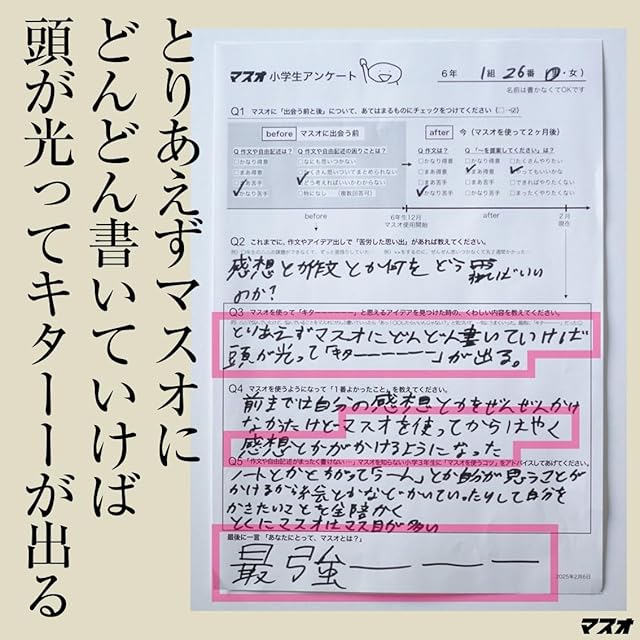 とりあえずマスオに
どんどん書いていけば
頭が光ってキターーが出る
マスオ 小学生アンケート
6年 1組 26番 (男・女)
名前は書かなくてOKです
Q1 マスオに「出会う前と後」について、あてはまるものにチェックをつけてください
before マスオに出会う前
after 今（マスオを使って2ヶ月後）
Q 作文や自由記述は？ Q 作文や自由記述の困りごとは？
Q 作文は？ Q 「〜を提案してください」は？
かなり得意 なにも思いつかない
かなり得意 たくさんやりたい
まあ得意 たくさん思いついてまとめられない
まあ得意 やってもいいかな
まあ苦手 どう考えればいいかわからない
まあ苦手 できればやりたくない
かなり苦手 特になし（複数回答可）
かなり苦手 まったくやりたくない
before
6年生12月
マスオ使用開始
after
2月
現在
Q2 これまでに、作文やアイデア出しで「苦労した思い出」があれば教えてください。
感想とか作文とか何をどう
ばいい
のか？
Q3 マスオを使って「キターーーーーー」と思えるアイデアを見つけた時の、くわしい内容を教えてください。
とりあえずマスオにどんどん書いていけば
頭が光って「キターーーーー」が出る。
Q4 マスオを使うようになって「1番よかったこと」を教えてください。
前までは自分の感想とかをぜんぜんかけ
なかったけどマスオを使ってからはやく
感想とかがかけるようになった
Q5 「作文や自由記述がまったく書けない…」マスオを知らない小学3年生に「マスオを使うコツ」をアドバイスしてあげてください。
ノートとかとちがって
とか自分が思うことが
かけるから絵とかなどかいていったりして自分を
かきたいことを全部かく
とくにマスオはマス目が多い
最後に一言「あなたにとって、マスオとは？」
最強ーーー
2025年2月6日
マスオ